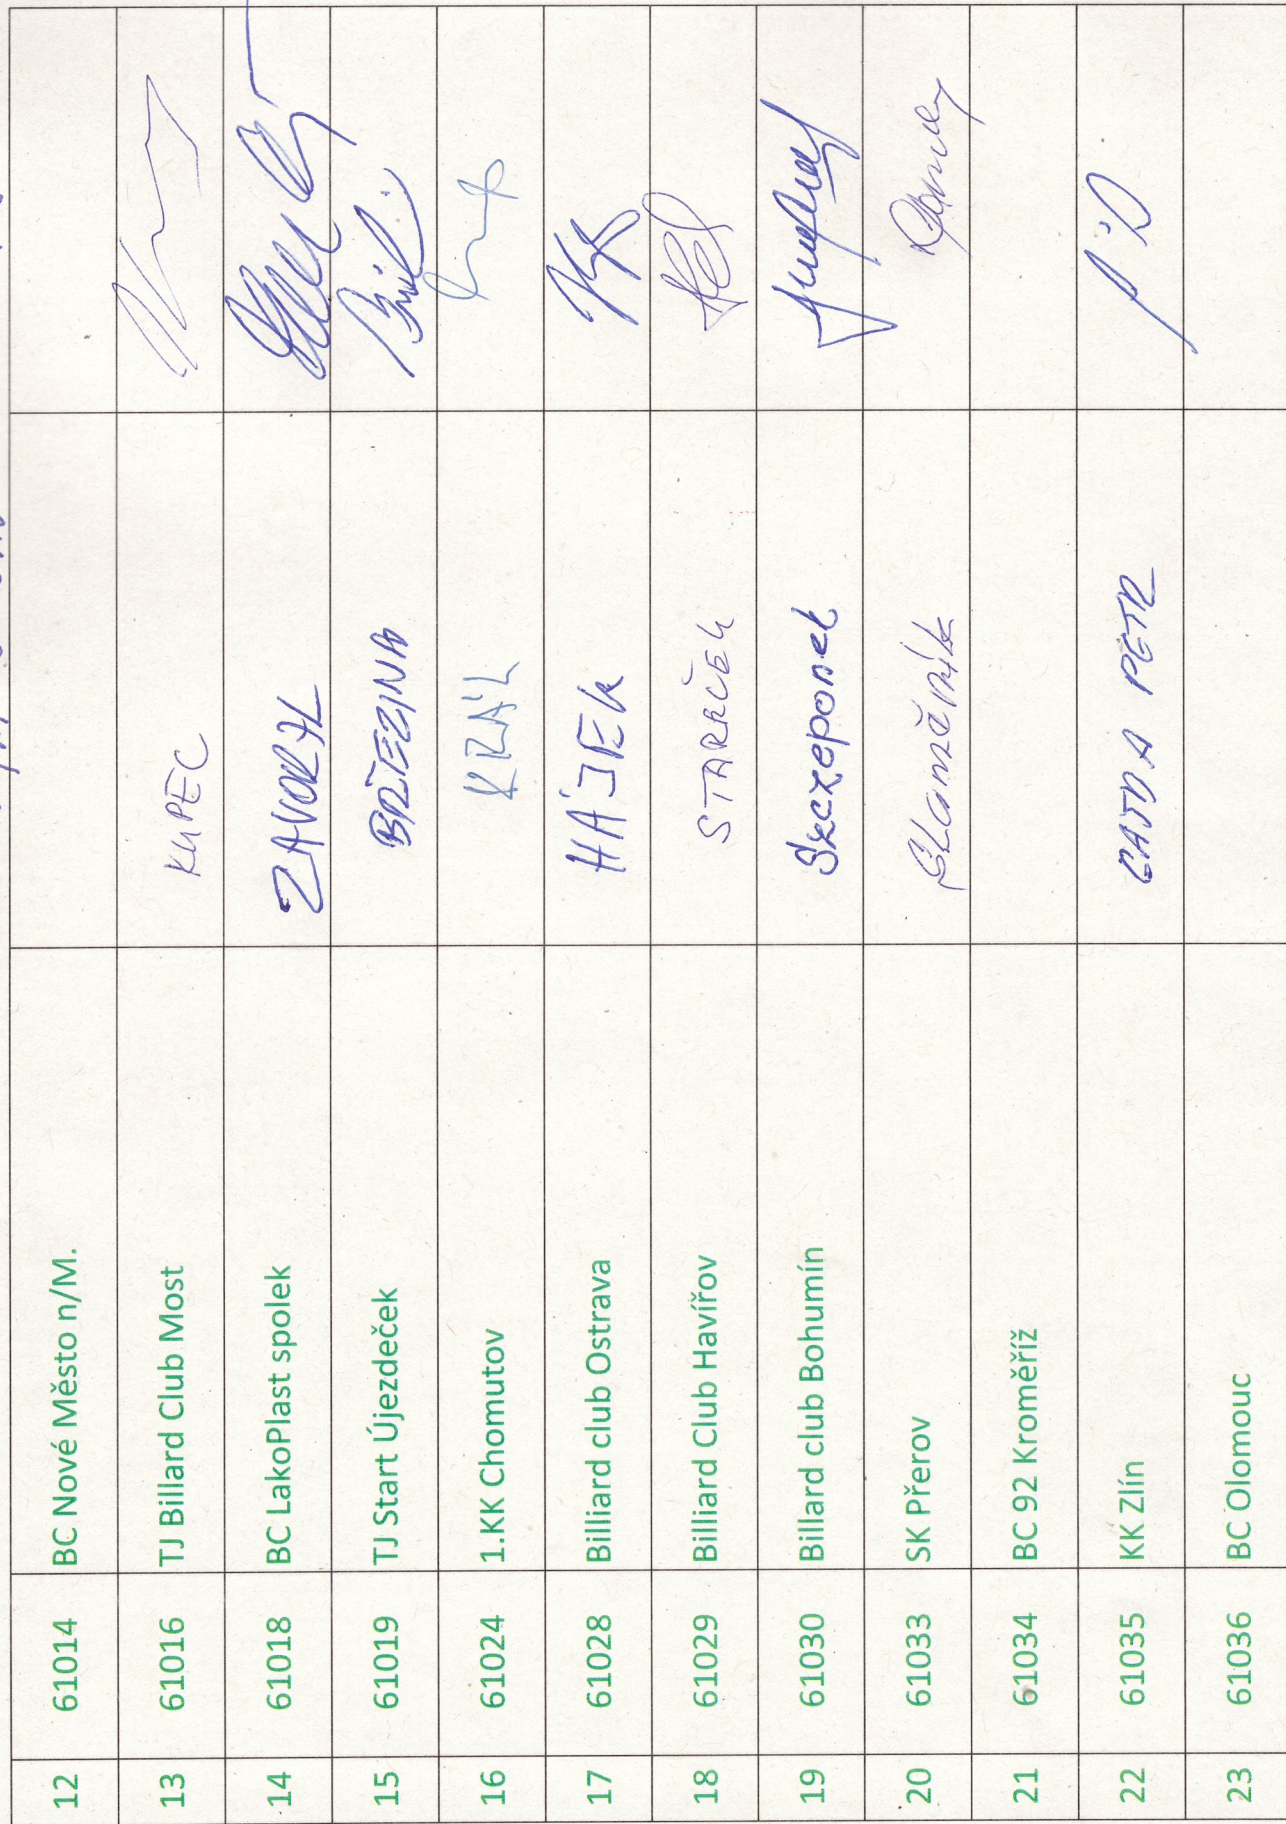 12 61014 BC Nové Město n/M.
13 61016 TJ Billard Club Most KUPEC
14 61018 BC LakoPlast spolek ZAVORAL
15 61019 TJ Start Újezdeček BŘEZINA
16 61024 1.KK Chomutov KRÁL
17 61028 Billiard club Ostrava HÁJEK
18 61029 Billiard Club Havířov STARÍČEK
19 61030 Billard club Bohumín Szczeponek
20 61033 SK Přerov
21 61034 BC 92 Kroměříž
22 61035 KK Zlín GAJDA PETR
23 61036 BC Olomouc